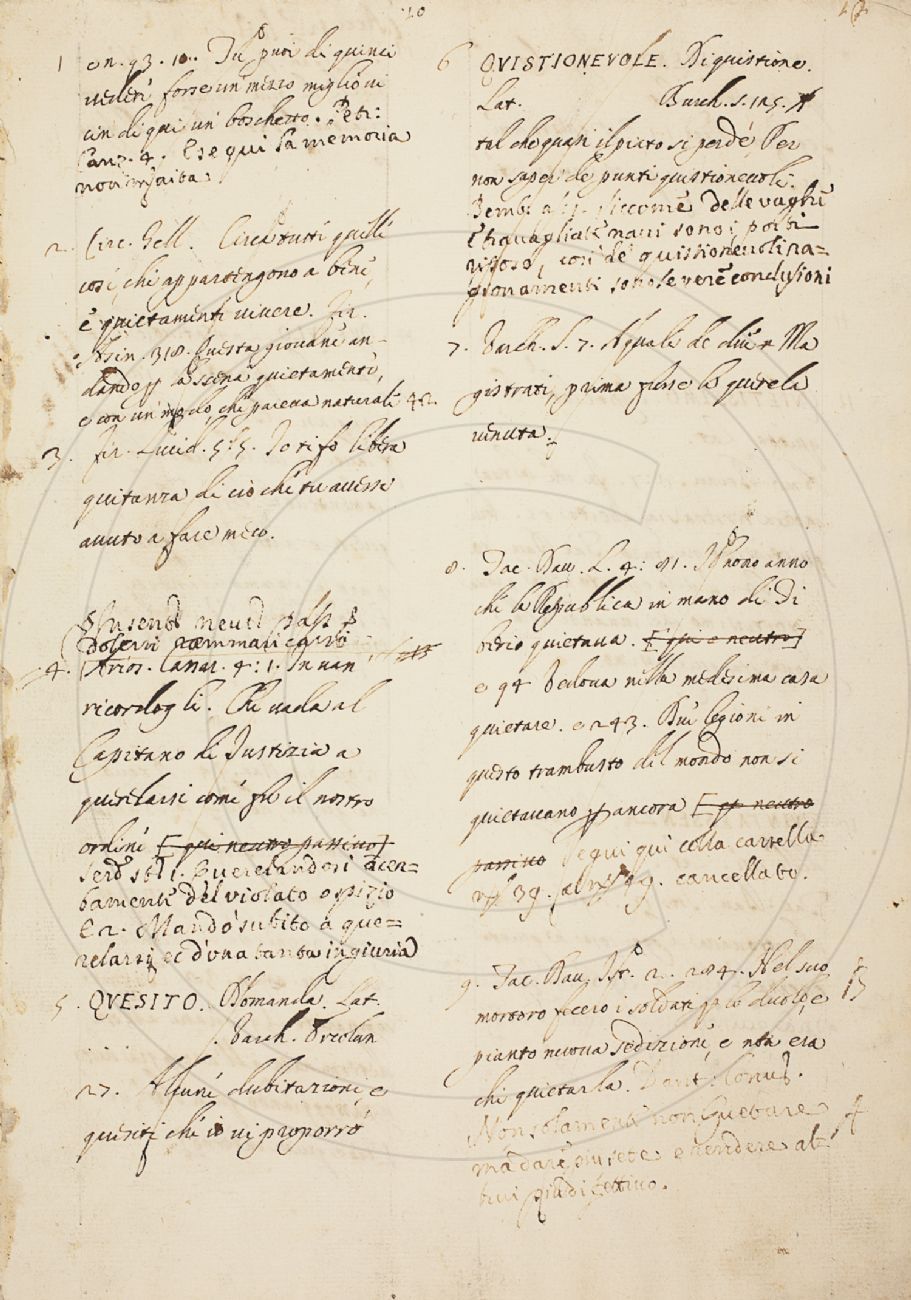 20
1 e n. 93. 10. Tu puoi di quinci
veder forse un mezzo miglio vi
cin di qui un boschetto. Petr:
Canz. 4. E se qui la memoria
non m'aita.
2. Circ. Gell. Circa tutti quelli
cosi, che appartengono a bene,
e quietamente vivere. Fir.
Asin. 318. Questa giovane an-
dando a scena quietamente,
e con un modo, che pareva naturale
42.
3. Fir. Lucid. 5: 5. Io ti fo libera
quitanza di ciò che tu avessi
avuto a fare meco.
4. Arios. Cassar. 4: 1. In van
ricordogli. Che vada al
Capitano di Justizia a
querelarsi come fu il nostro
ordine [qui neutro passivo]
Querelandosi acer-
bamente del violato ospizio
E 2. Mandò subito a que-
relarsi ec d'una tanta ingiuria
5. QVESITO. Domanda. Lat.
Varch. Ercolan
27. Alcune dubitazioni, e
quesiti che io vi proporrò
6 QVISTIONEVOLE. Di quistione.
Lat. Burch. s. 125.
tal che quasi il piato si perdé, Per
non saper de punti quistionevoli.
Bemb. a delle vaghe
e travagliate navi sono i porti
riposo, così de quistionevoli ra=
gionamenti sono le vere conclusioni
7. Varch. S. 7. A quale de due Ma
gistrati, prima fusse la querela
venuta.
8. Tac. Dav. L. 4: 81. nono anno
che la Republica in mano di Ti
berio quietava. [qui e neutro]
e 94 Vedova nella medesima casa
quietare. e 243. Due legioni in
questo trambusto del mondo non si
quietavano ancora [qui neutro
passivo segui qui colla cartella
39. al 49. cancellato.
9. Tac. Dav. 2. 284. Nel suo
mortoro fecero i soldati duolo, e
pianto nuova sedizione, e non era
chi quietarla. Dant: Conv.
Non solamente non quetare
ma dare più sete e rendere al-
trui